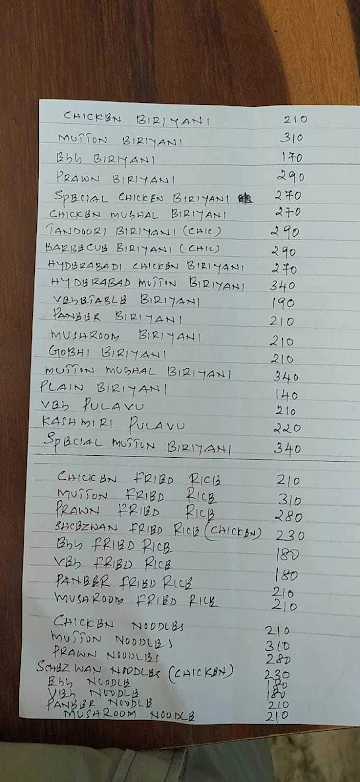 CHICKEN BIRIYANI 210
MUTTON BIRIYANI 310
EGG BIRIYANI 170
PRAWN BIRIYANI 290
SPECIAL CHICKEN BIRIYANI 270
CHICKEN MUGHAL BIRIYANI 270
TANDOORI BIRIYANI (CHIC) 290
BARBECUE BIRIYANI (CHIC) 290
HYDERABADI CHICKEN BIRIYANI 270
HYDERABAD MUTTON BIRIYANI 340
VEGETABLE BIRIYANI 190
PANEER BIRIYANI 210
MUSHROOM BIRIYANI 210
GOBHI BIRIYANI 210
MUTTON MUGHAL BIRIYANI 340
PLAIN BIRIYANI 140
VEG PULAVU 210
KASHMIRI PULAVU 220
SPECIAL MUTTON BIRIYANI 340
CHICKEN FRIED RICE 210
MUTTON FRIED RICE 310
PRAWN FRIED RICE 280
SHEZWAN FRIED RICE (CHICKEN) 230
EGG FRIED RICE 180
VEG FRIED RICE 180
PANEER FRIED RICE 210
MUSHROOM FRIED RICE 210
CHICKEN NOODLES 210
MUTTON NOODLES 310
PRAWN NOODLES 280
SHEZWAN NOODLES (CHICKEN) 230
EGG NOODLE 180
VEG NOODLE 180
PANEER NOODLE 210
MUSHROOM NOODLE 210